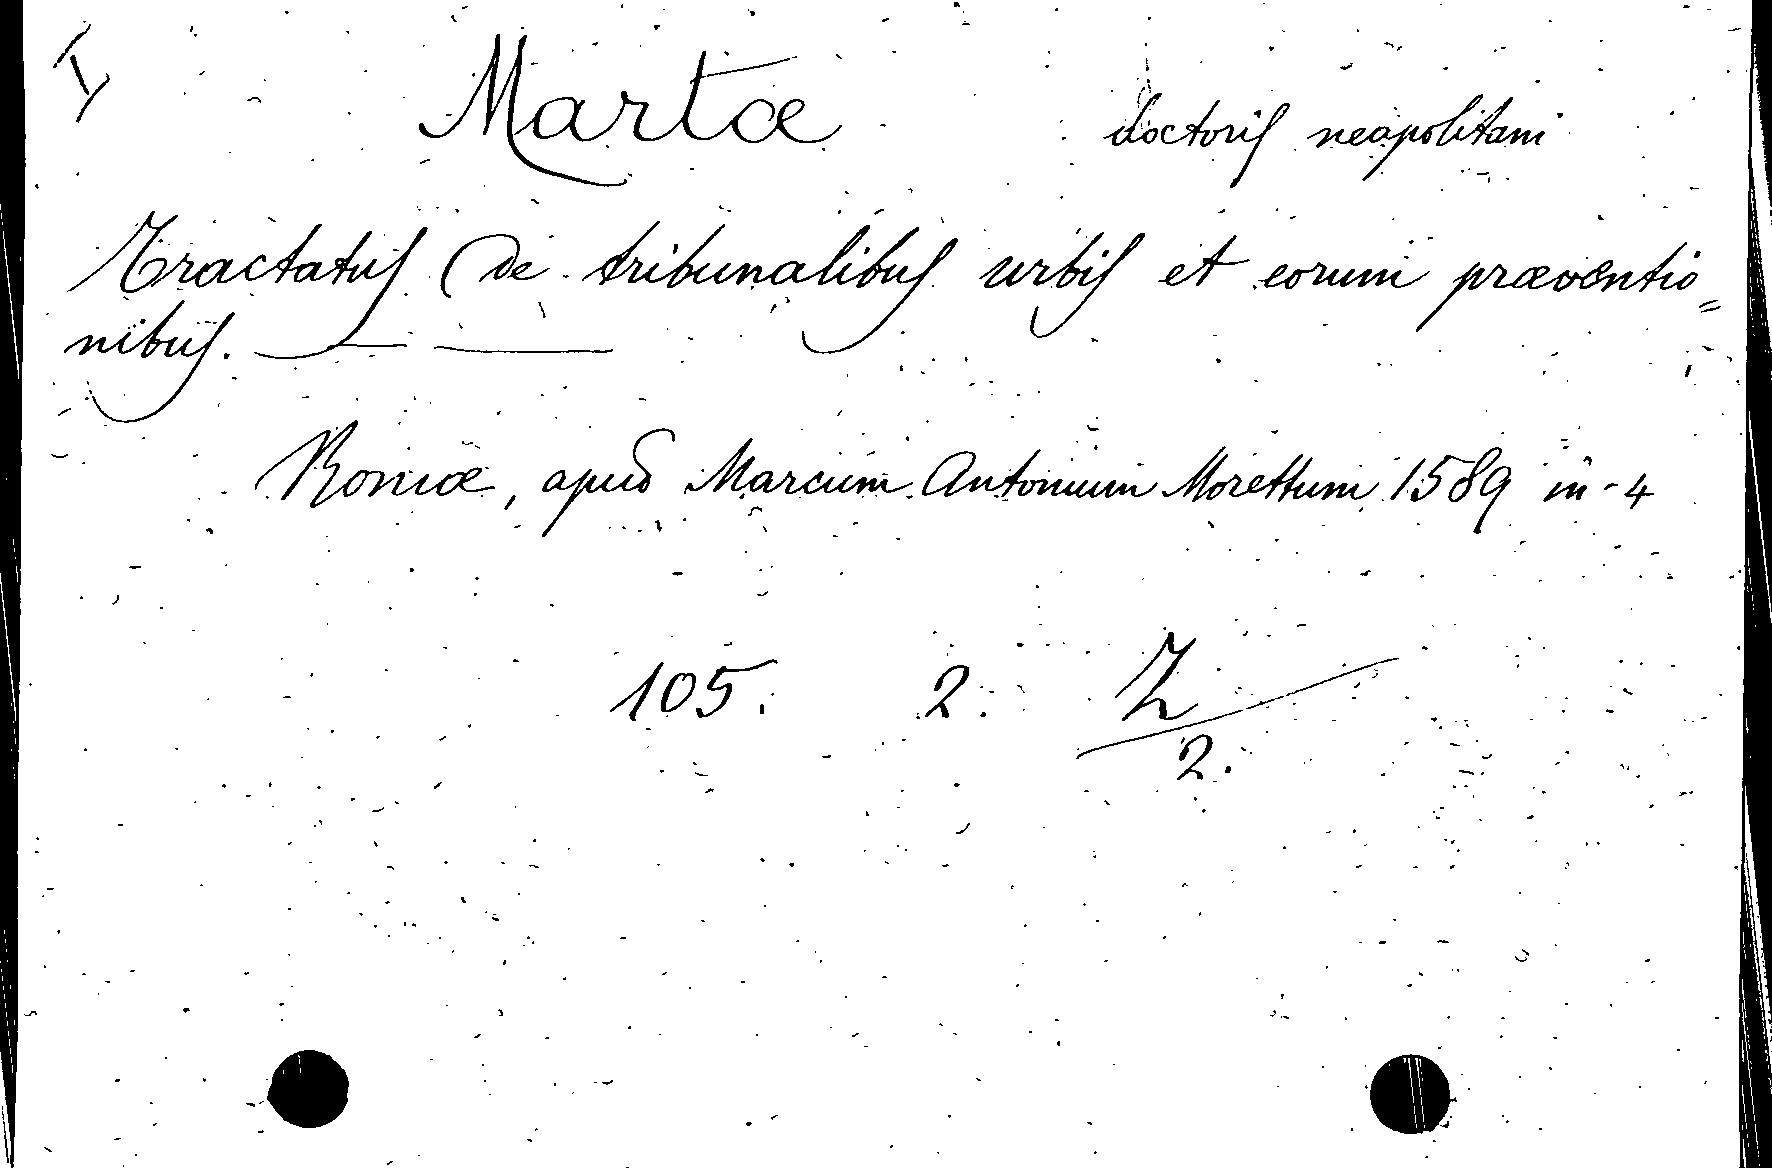 Martæ doctoris neapolitani
Tractatus de tribunalibus urbis et eorum præventio=
nibus.
Romæ, apud Marcum Antonium Morettum 1589 in-4
105. 2. Z
2.